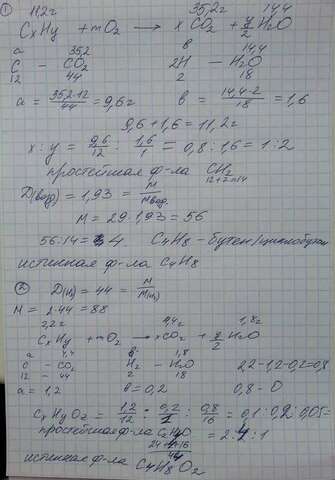 ① 11,2г 35,2г 14,4
CxHy + mO2 → xCO2 + y/2 H2O
a 35,2 в 14,4
C – CO2 2H – H2O
12 44 2 18
a = 35,2·12/44 = 9,6г в = 14,4·2/18 = 1,6
9,6+1,6 = 11,2г
x : y = 9,6/12 : 1,6/1 = 0,8 : 1,6 = 1:2
простейшая ф-ла CH2
12+2=14
D(возд) = 1,93 = M/Mвозд.
M = 29·1,93 = 56
56:14 = 4 C4H8 – бутен/циклобутан
истинная ф-ла C4H8
② D(H2) = 44 = M/M(H2)
M = 2·44 = 88
2,2г 4,4г 1,8г
CxHy + mO2 → xCO2 + y/2 H2O
a 4,4 в 1,8
C – CO2 H2 – H2O 2,2-1,2-0,2=0,8
12 – 44 2 18
a = 1,2 в = 0,2 0,8 – O
CxHyOz = 1,2/12 : 0,2/1 : 0,8/16 = 0,1 : 0,2 : 0,05 =
простейшая ф-ла C2H4O = 2:4:1
24+4+16
44
истинная ф-ла C4H8O2